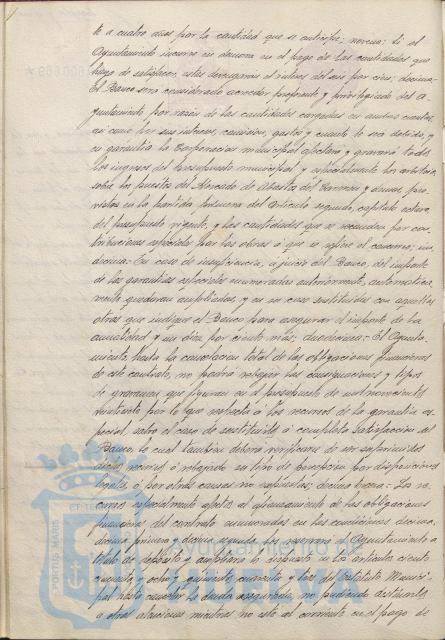 te a cuatro dias por la cantidad que se anticipe; novena: si el
Ayuntamiento incurre en demora en el pago de las cantidades que
haya de satisfacer, estas devengarán el interes del seis por cien; decima:
El Banco será considerado acreedor preferente y privilegiado del A-
yuntamiento por razón de las cantidades cargadas en ambas cuentas,
asi como por sus intereses, comision, gastos y cuanto le sea debido, y
en garantia la Corporacion municipal afectará y gravará todos
los ingresos del Presupuesto municipal y especialmente los arbitrios
sobre los puestos del Mercado de Abastos del Carmen y demas, pre-
vistos en la partida primera del articulo segundo, capitulo octavo,
del presupuesto vigente, y las cantidades que se recauden por con-
tribuciones especiales por las obras á que se refiere el concurso; un-
decima: En caso de insuficiencia, á juicio del Banco, del importe
de las garantias especiales enumeradas anteriormente, automatica-
mente quedarán ampliadas, y en su caso sustituidas con aquellas
otras que indique el Banco para asegurar el importe de la
anualidad y un diez por ciento más; duodecima: El Ayunta-
miento, hasta la cancelacion total de las obligaciones financieras
de este contrato, no podrá rebajar las consignaciones y tipos
de gravamen que figuran en el presupuesto de mil novecientos
veintisiete por lo que respecta á los recursos de la garantia es-
pecial, salvo el caso de sustituirlos á completa satisfaccion del
Banco, lo cual tambien deberá verificarse de ser suprimidos
dichos recursos, ó rebajado su tipo de percepcion por disposiciones
legales, ó por otras causas no previstas; decima tercera: Los re-
cursos especialmente afectos al afianzamiento de las obligaciones
financieras del contrato enumerados en las condiciones decima,
decima primera y decima segunda, los conservará el Ayuntamiento a
titulo de deposito y
cincuenta y ocho y quinientos cuarenta y dos del Estatuto Munici-
pal hasta cancelar la deuda asegurada, no pudiendo destinarlos
a otras atenciones mientras no esté al corriente en el pago de
Ayuntamiento de
PORTUS MAGNUS